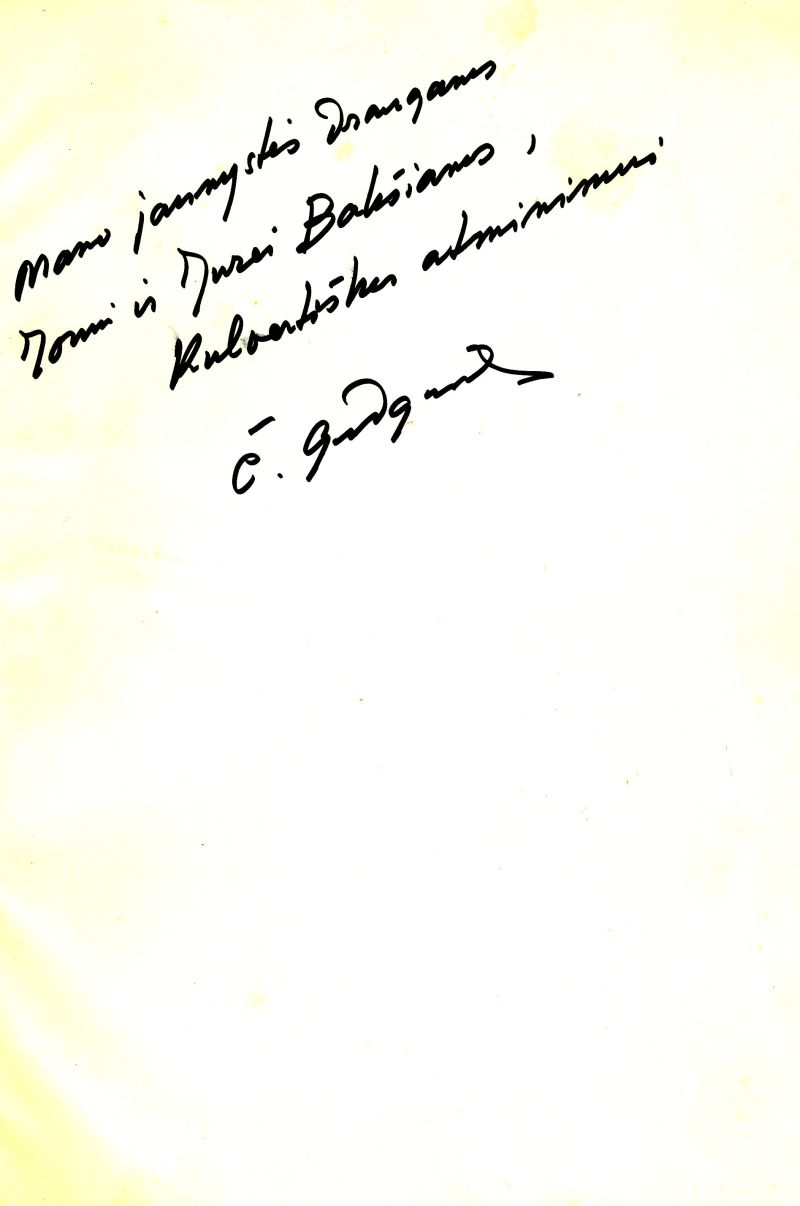 Mano jaunystės draugams
Jonui ir Jurei Bakšiams,
Kulvertiškės atminimui
Č. Gudynas